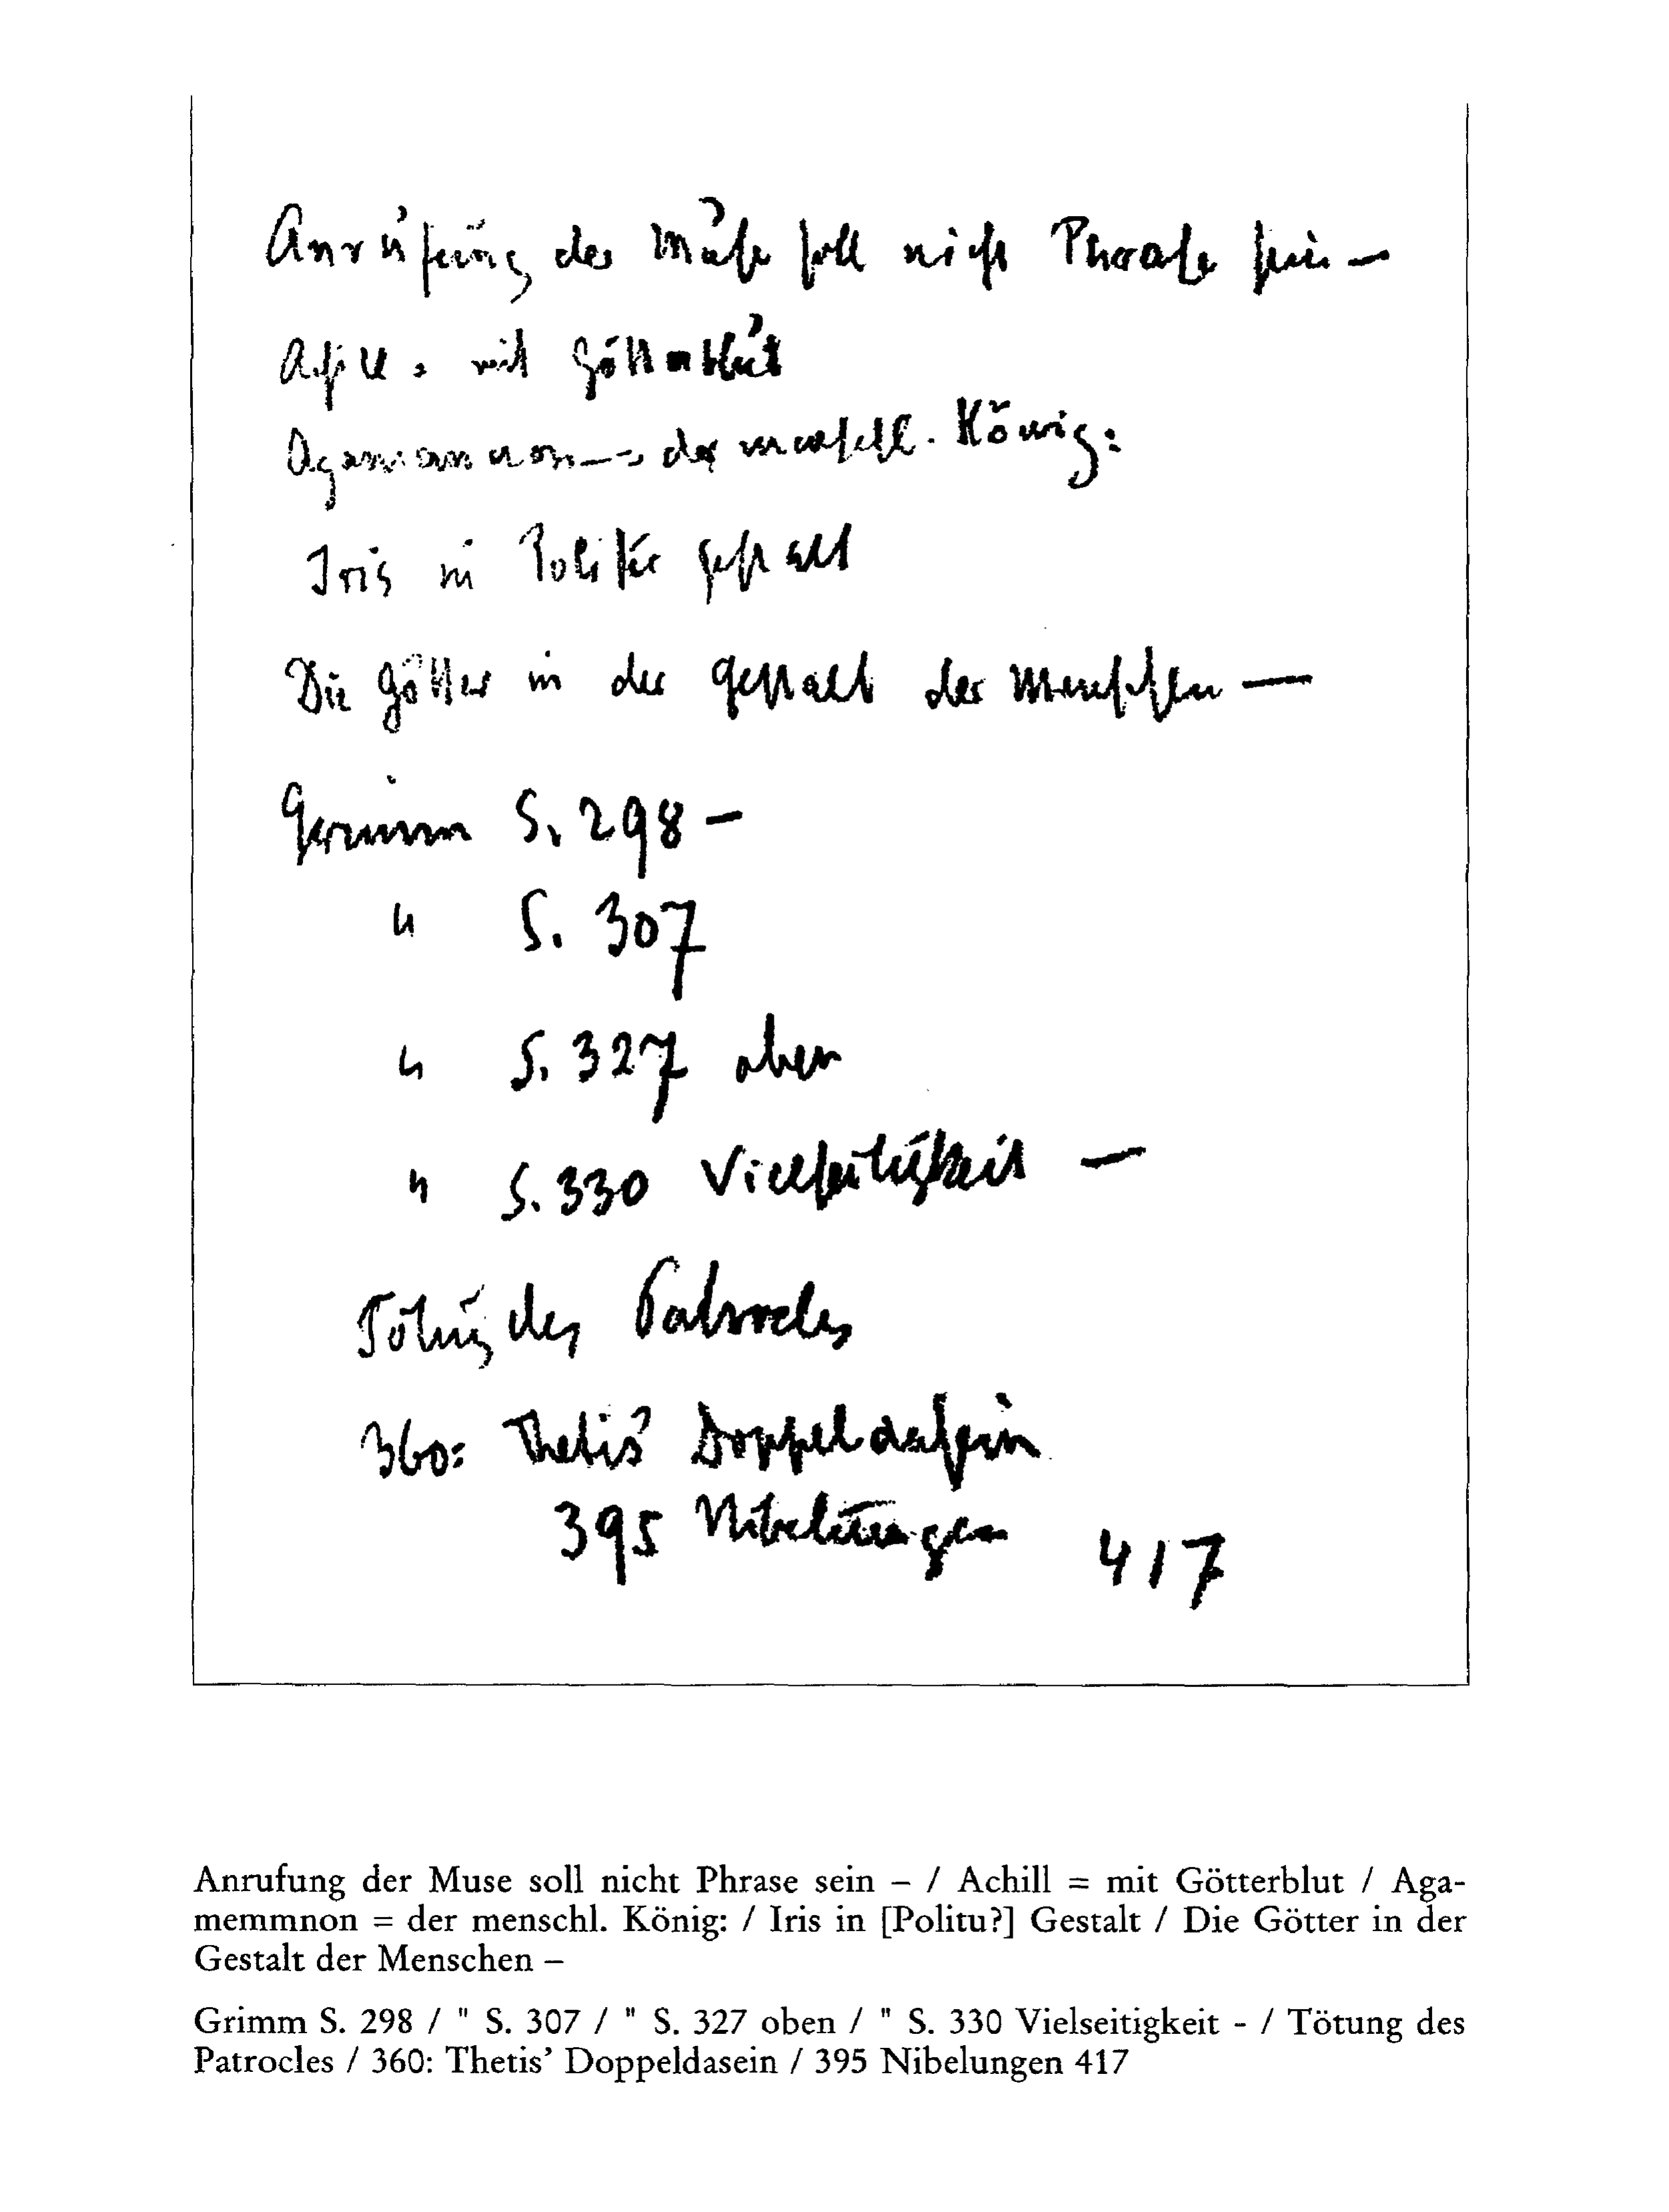 Anrufung der Muse soll nicht Phrase sein –
Achill = mit Götterblut
Agamemnon = der menschl. König:
Iris in Gestalt
Die Götter in der Gestalt der Menschen —
Grimm S. 298 –
" S. 307
" S. 327 oben
" S. 330 Vielseitigkeit —
Tötung des Patrocles
360: Thetis' Doppeldasein
395 Nibelungen 417
Anrufung der Muse soll nicht Phrase sein – / Achill = mit Götterblut / Aga-
memmnon = der menschl. König: / Iris in [Politu?] Gestalt / Die Götter in der
Gestalt der Menschen –
Grimm S. 298 / " S. 307 / " S. 327 oben / " S. 330 Vielseitigkeit - / Tötung des
Patrocles / 360: Thetis’ Doppeldasein / 395 Nibelungen 417